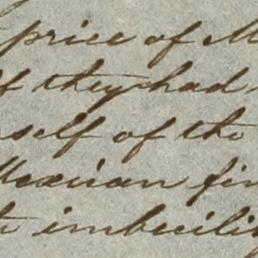 price of M
if they had
self of the
Mexican fin
imbecility